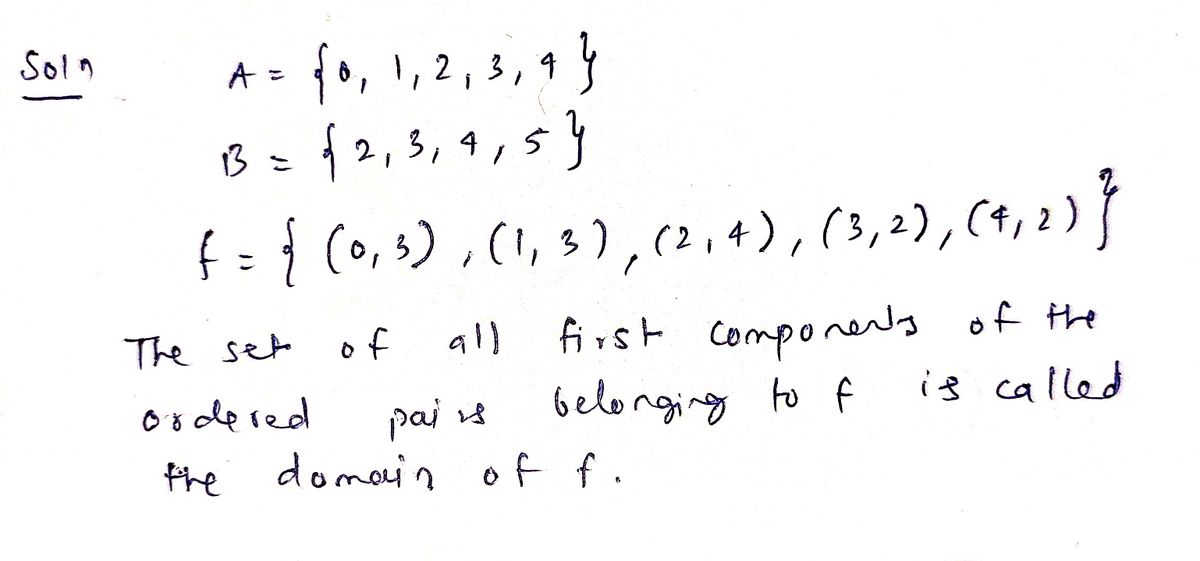 Soln A = {0, 1, 2, 3, 4}
B = {2, 3, 4, 5}
f = { (0, 3), (1, 3), (2, 4), (3, 2), (4, 2)}
The set of all first components of the
ordered pairs belonging to f is called
the domain of f.